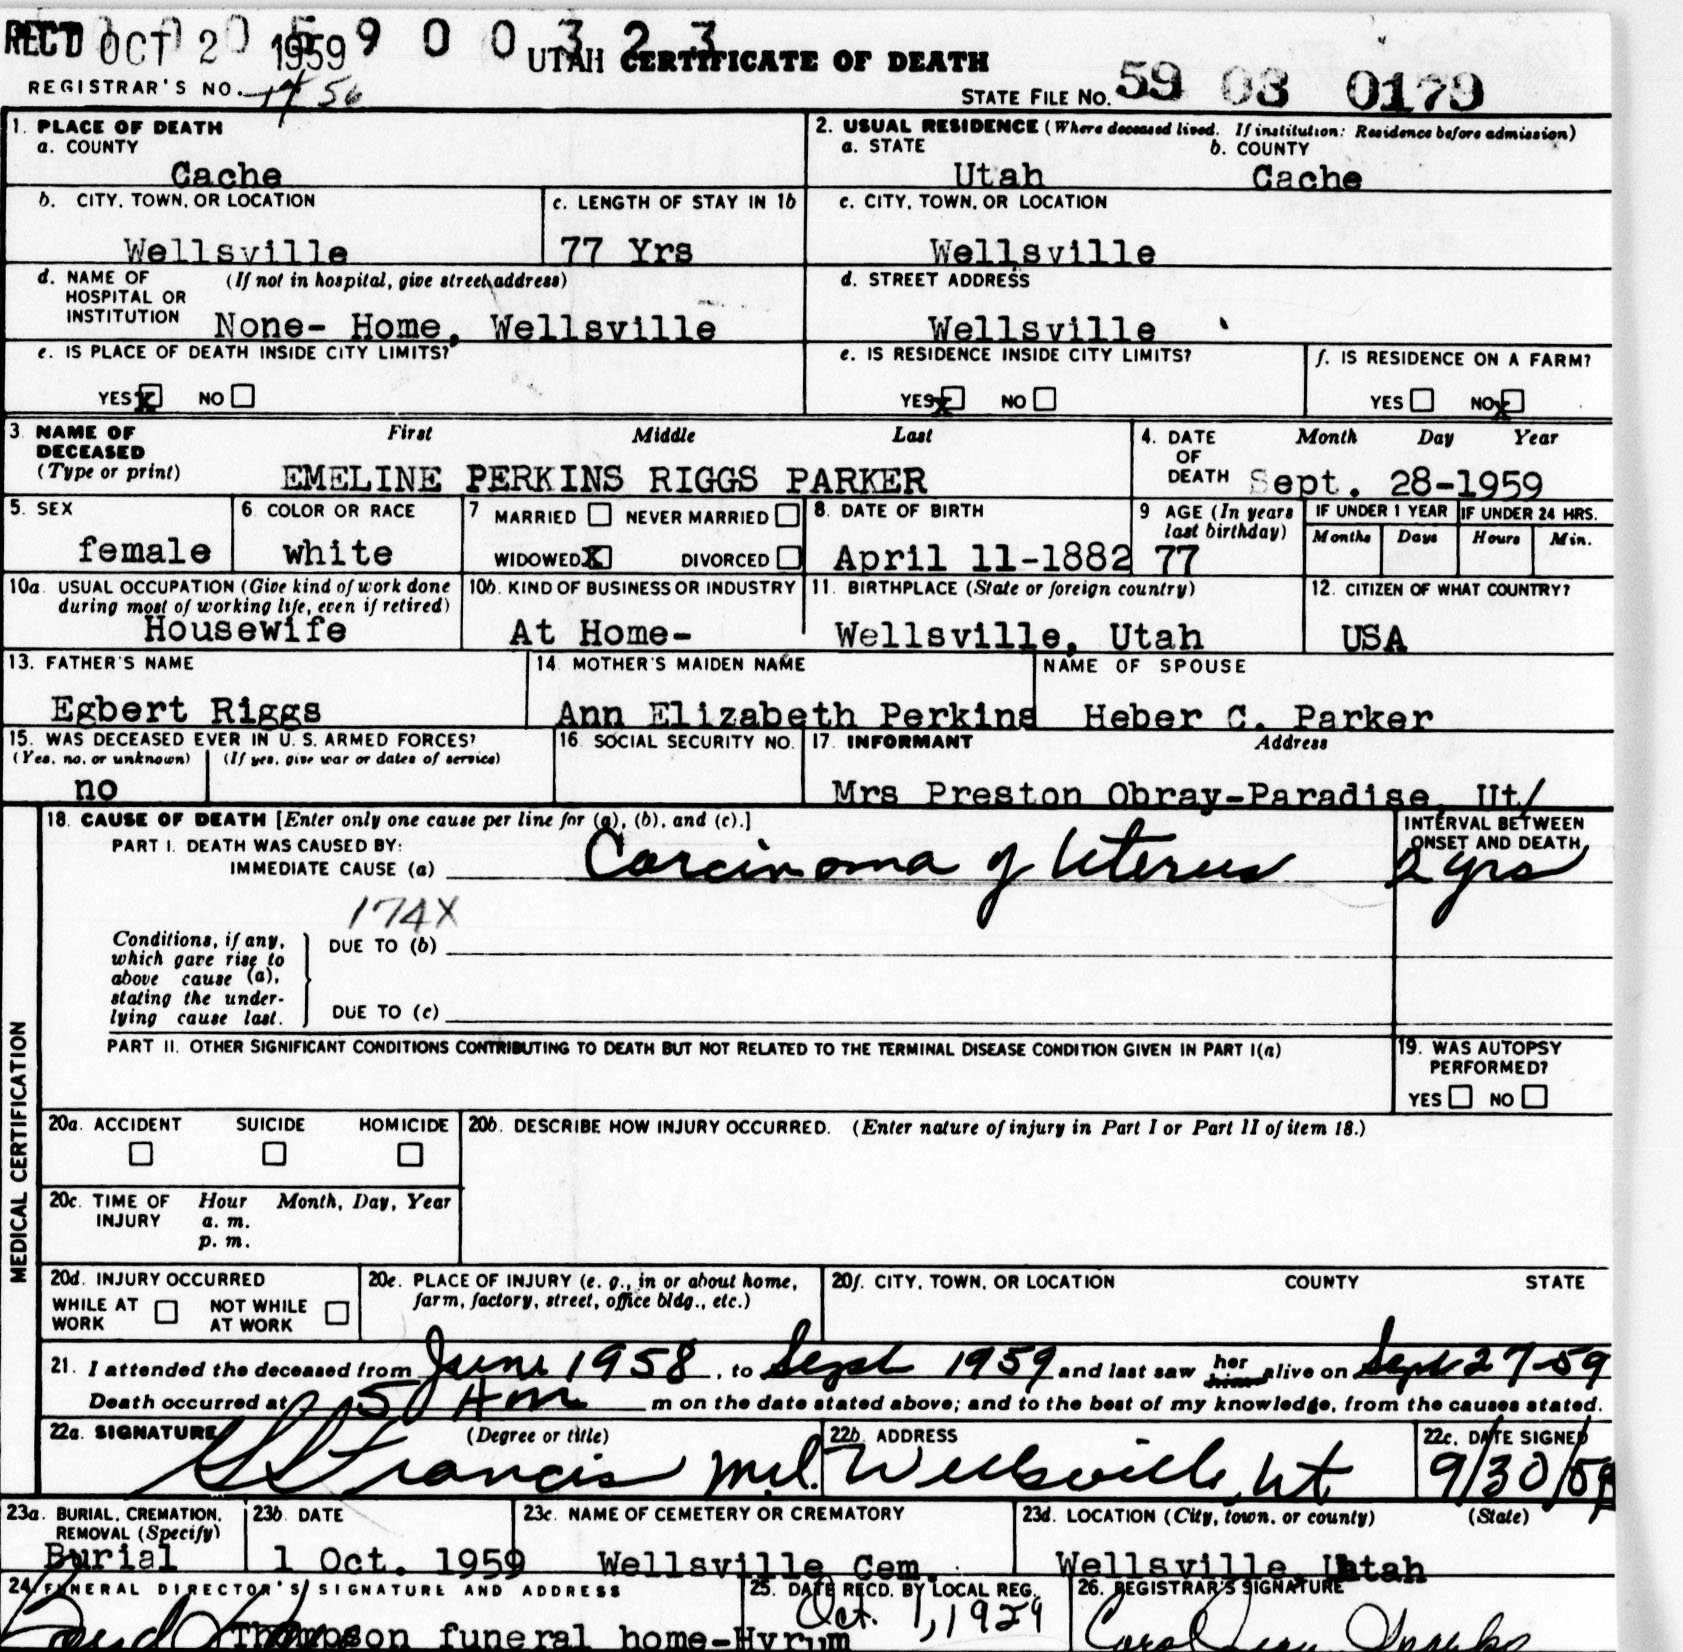 REC'D OCT 20 1959 9 0 0 3 2 3
UTAH CERTIFICATE OF DEATH
REGISTRAR'S NO. 56
STATE FILE NO. 59 03 0179
1. PLACE OF DEATH
a. COUNTY
Cache
2. USUAL RESIDENCE (Where deceased lived. If institution: Residence before admission)
a. STATE b. COUNTY
Utah Cache
b. CITY, TOWN, OR LOCATION
Wellsville
c. LENGTH OF STAY IN 1b
77 Yrs
c. CITY, TOWN, OR LOCATION
Wellsville
d. NAME OF (If not in hospital, give street address)
HOSPITAL OR
INSTITUTION None- Home, Wellsville
d. STREET ADDRESS
Wellsville
e. IS PLACE OF DEATH INSIDE CITY LIMITS?
YES X NO
e. IS RESIDENCE INSIDE CITY LIMITS?
YES X NO
f. IS RESIDENCE ON A FARM?
YES NO X
3. NAME OF DECEASED First Middle Last
(Type or print) EMELINE PERKINS RIGGS PARKER
4. DATE OF DEATH Month Day Year
Sept. 28-1959
5. SEX
female
6. COLOR OR RACE
white
7 MARRIED NEVER MARRIED
WIDOWED X DIVORCED
8. DATE OF BIRTH
April 11-1882
9 AGE (In years last birthday)
77
IF UNDER 1 YEAR IF UNDER 24 HRS.
Months Days Hours Min.
10a. USUAL OCCUPATION (Give kind of work done
during most of working life, even if retired)
Housewife
10b. KIND OF BUSINESS OR INDUSTRY
At Home-
11. BIRTHPLACE (State or foreign country)
Wellsville, Utah
12. CITIZEN OF WHAT COUNTRY?
USA
13. FATHER'S NAME
Egbert Riggs
14 MOTHER'S MAIDEN NAME
Ann Elizabeth Perkins
NAME OF SPOUSE
Heber C. Parker
15. WAS DECEASED EVER IN U. S. ARMED FORCES?
(Yes, no, or unknown) (If yes, give war or dates of service)
no
16. SOCIAL SECURITY NO.
17. INFORMANT Address
Mrs Preston Obray-Paradise, Ut/
MEDICAL CERTIFICATION
18. CAUSE OF DEATH [Enter only one cause per line for (a), (b), and (c).]
PART I. DEATH WAS CAUSED BY:
IMMEDIATE CAUSE (a) Carcinoma of Uterus
INTERVAL BETWEEN
ONSET AND DEATH
2 yrs
174X
Conditions, if any,
which gave rise to
above cause (a),
stating the under-
lying cause last.
DUE TO (b)
DUE TO (c)
PART II. OTHER SIGNIFICANT CONDITIONS CONTRIBUTING TO DEATH BUT NOT RELATED TO THE TERMINAL DISEASE CONDITION GIVEN IN PART I(a)
19. WAS AUTOPSY
PERFORMED?
YES NO
20a. ACCIDENT SUICIDE HOMICIDE
20b. DESCRIBE HOW INJURY OCCURRED. (Enter nature of injury in Part I or Part II of item 18.)
20c. TIME OF INJURY Hour Month, Day, Year
a. m.
p. m.
20d. INJURY OCCURRED
WHILE AT WORK NOT WHILE AT WORK
20e. PLACE OF INJURY (e. g., in or about home,
farm, factory, street, office bldg., etc.)
20f. CITY, TOWN, OR LOCATION COUNTY STATE
21. I attended the deceased from June 1958, to Sept 1959 and last saw her him alive on Sept 27-59
Death occurred at 5 A m m on the date stated above; and to the best of my knowledge, from the causes stated.
22a. SIGNATURE (Degree or title)
Francis M.D.
22b. ADDRESS
Wellsville, Ut
22c. DATE SIGNED
9/30/59
23a. BURIAL, CREMATION,
REMOVAL (Specify)
Burial
23b. DATE
1 Oct. 1959
23c. NAME OF CEMETERY OR CREMATORY
Wellsville Cem.
23d. LOCATION (City, town, or county) (State)
Wellsville, Utah
24 FUNERAL DIRECTOR'S SIGNATURE AND ADDRESS
Thompson funeral home-Hyrum
25. DATE RECD. BY LOCAL REG.
Oct. 1, 1959
26. REGISTRAR'S SIGNATURE